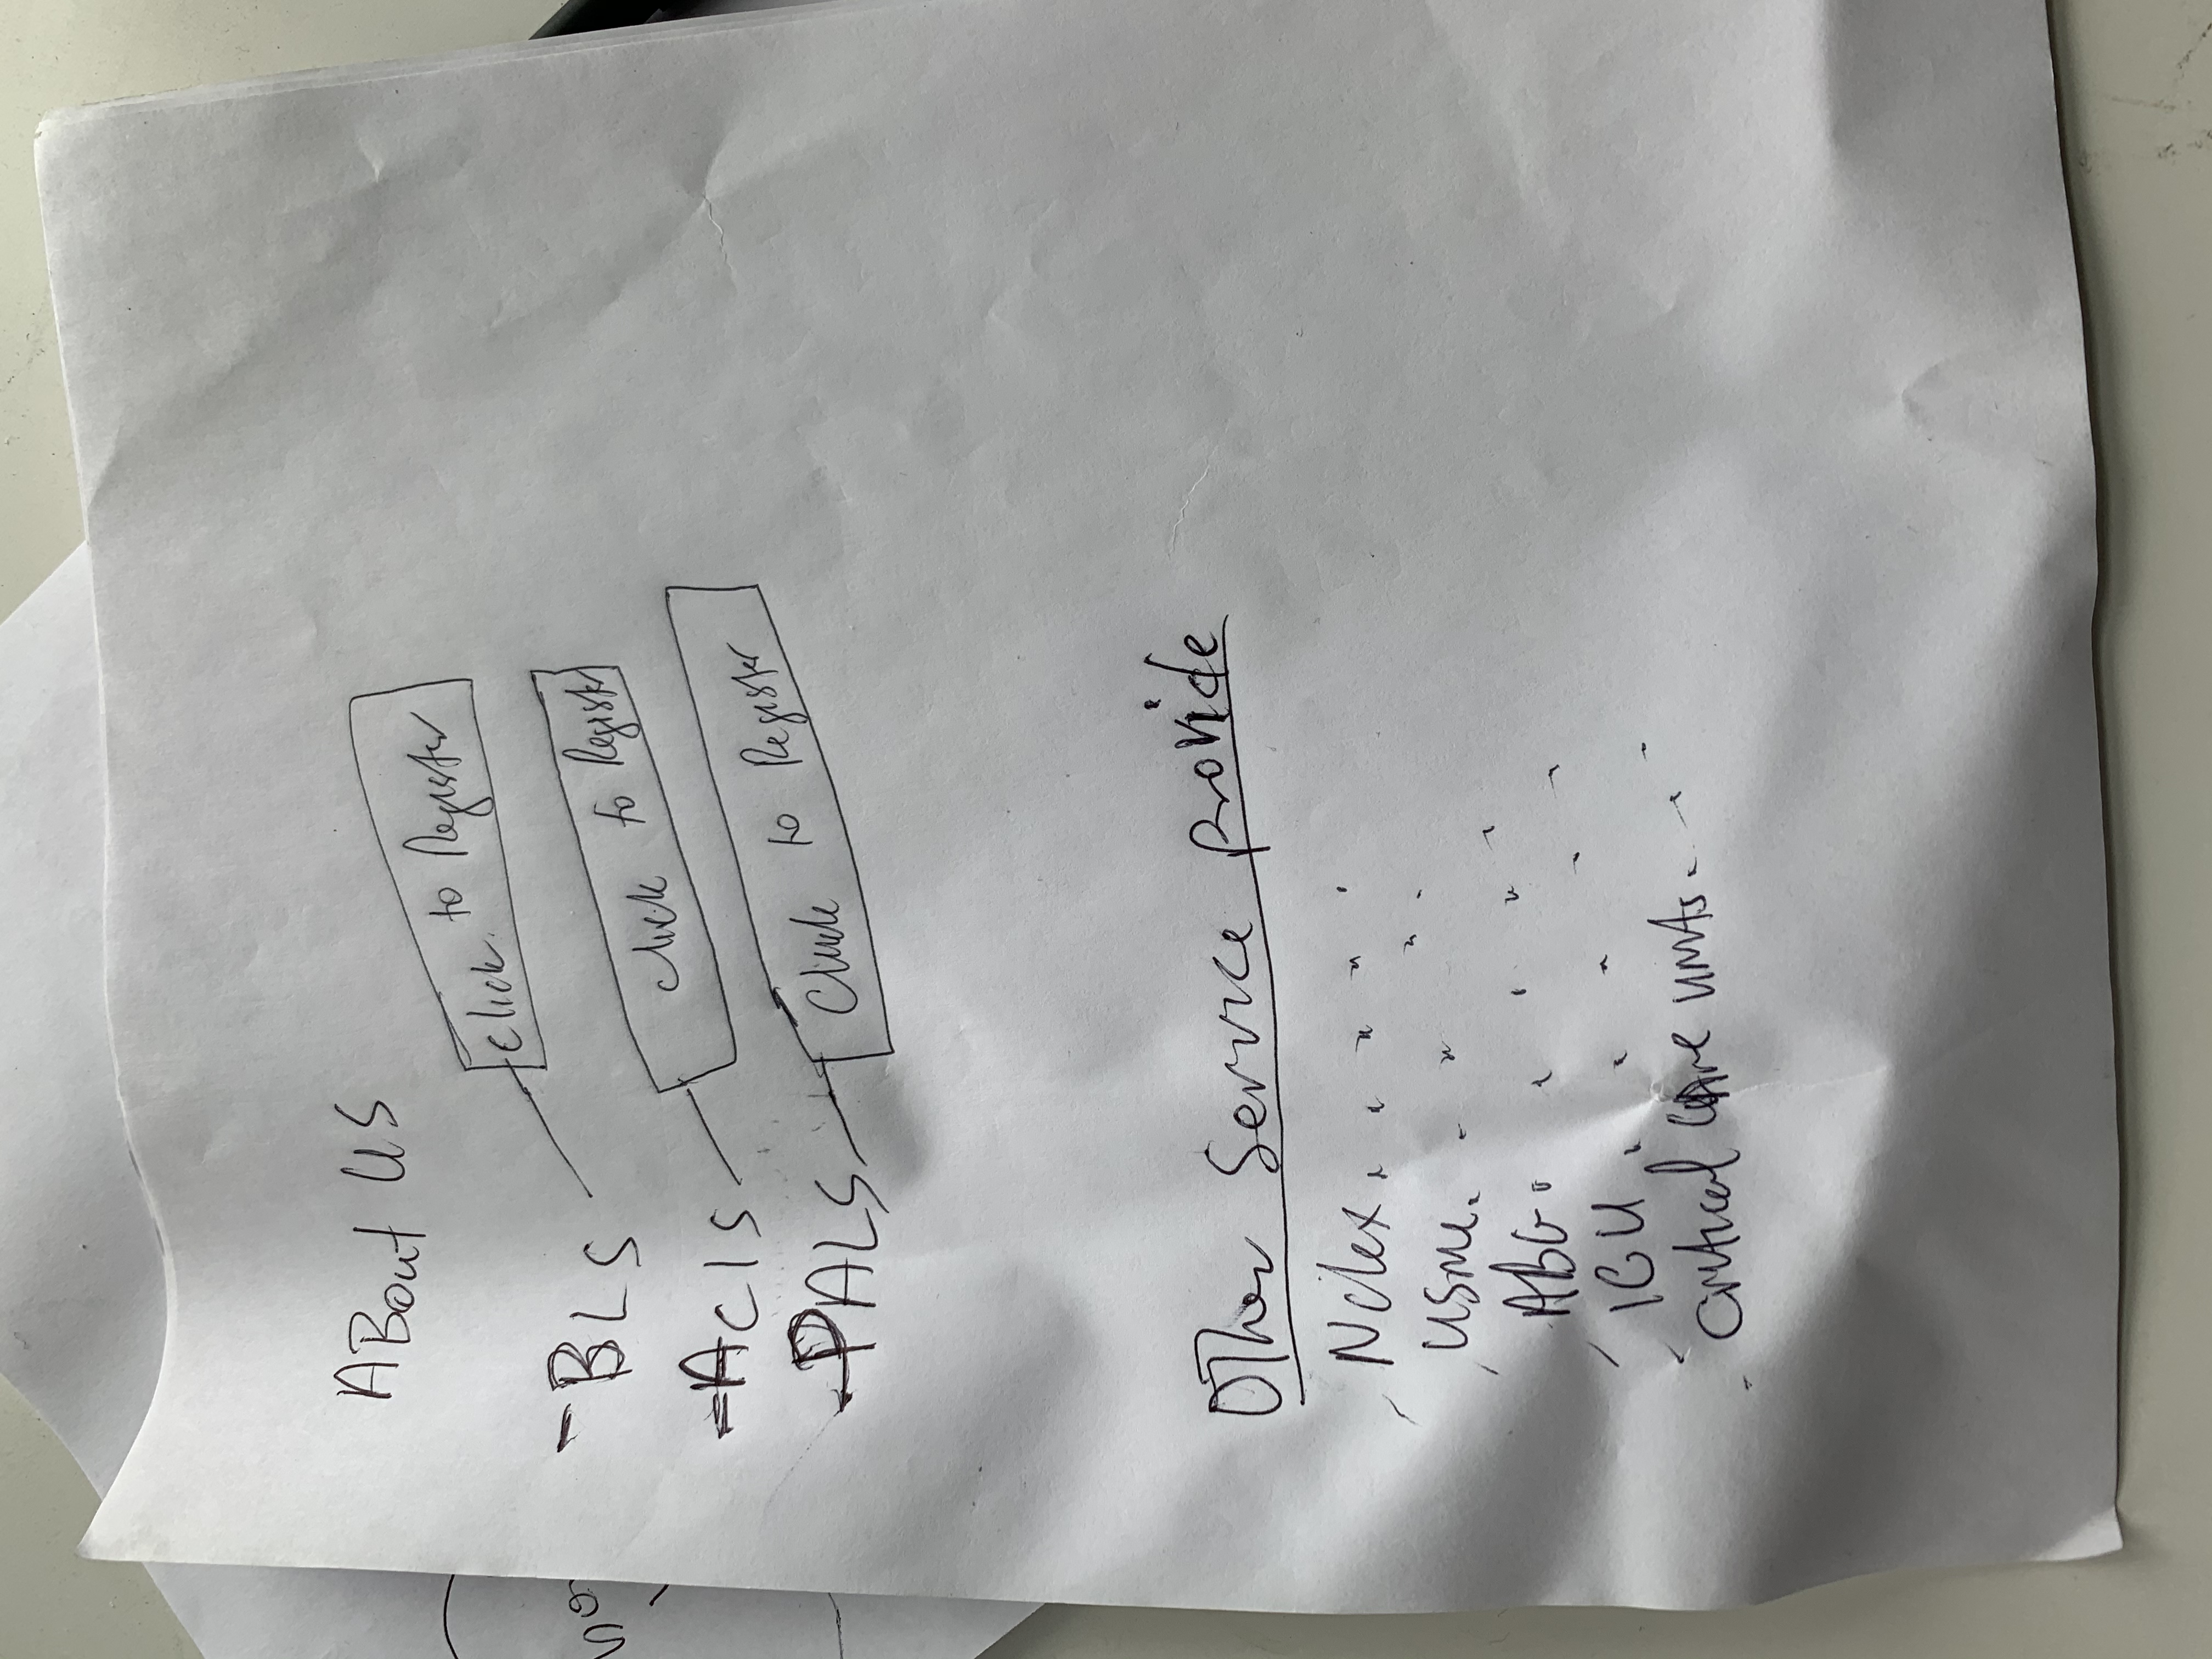 ABout US
Click to Register
- BLS
Click to Register
- ACLS
Click to Register
- PALS
Other Service provide
- Nclex . . . . .
- USMLE . . . . .
- ABG . . . . .
- ICU . . . . .
- Critical Care units . . .
no